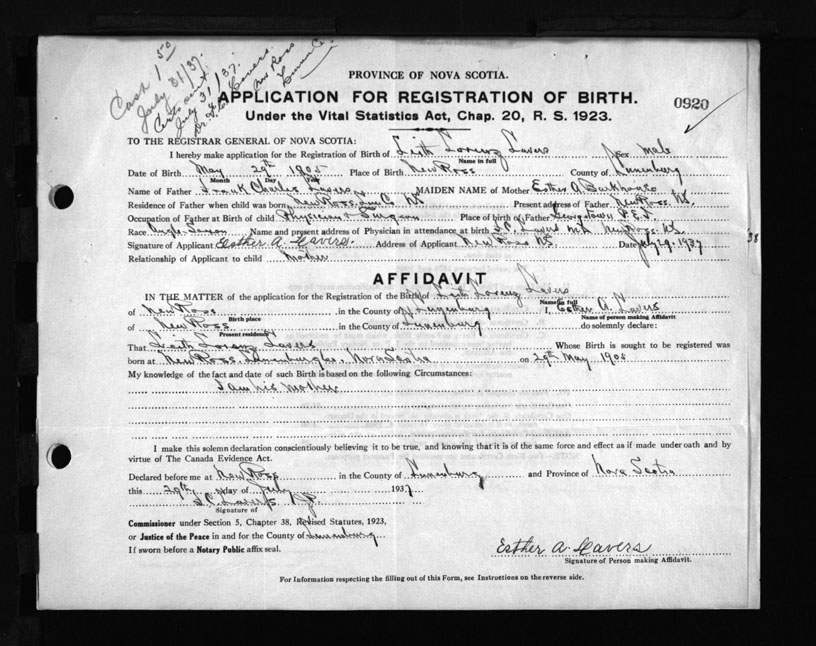 Cash 1.50
July 31/37.
Cert sent
July 31/37.
Dr. Lavers
New Ross
Lunen Co.
PROVINCE OF NOVA SCOTIA.
APPLICATION FOR REGISTRATION OF BIRTH.
0920
Under the Vital Statistics Act, Chap. 20, R. S. 1923.
TO THE REGISTRAR GENERAL OF NOVA SCOTIA:
I hereby make application for the Registration of Birth of Leith Lorenz Lavers Sex male
Name in full
Date of Birth May 29th 1905 Place of Birth New Ross County of Lunenburg
Month Day Year
Name of Father Frank Charles Lavers MAIDEN NAME of Mother Esther A
Residence of Father when child was born New Ross, Lun Co NS Present address of Father New Ross NS.
Occupation of Father at Birth of child Physician & Surgeon Place of birth of Father Georgetown P.E.I.
Race Anglo-Saxon Name and present address of Physician in attendance at birth Lavers M.D. New Ross. N.S.
Signature of Applicant Esther A. Lavers. Address of Applicant New Ross NS Date July 29. 1937
Relationship of Applicant to child Mother
38
AFFIDAVIT
IN THE MATTER of the application for the Registration of the Birth of Leith Lorenz Lavers
Name in full
of New Ross in the County of Lunenburg I, Esther A. Lavers
Birth place Name of person making Affidavit
of New Ross in the County of Lunenburg do solemnly declare:
Present residence
That Leith Lorenz Lavers Whose Birth is sought to be registered was
born at New Ross. Lunenburg Co., Nova Scotia on 29th May 1905
My knowledge of the fact and date of such Birth is based on the following Circumstances:
I am his mother
I make this solemn declaration conscientiously believing it to be true, and knowing that it is of the same force and effect as if made under oath and by
virtue of The Canada Evidence Act.
Declared before me at New Ross in the County of Lunenburg and Province of Nova Scotia
this 29th day of July 1937
Lavers J.P.
Signature of
Commissioner under Section 5, Chapter 38, Revised Statutes, 1923,
or Justice of the Peace in and for the County of Lunenburg
If sworn before a Notary Public affix seal.
Esther A. Lavers
Signature of Person making Affidavit.
For Information respecting the filling out of this Form, see Instructions on the reverse side.